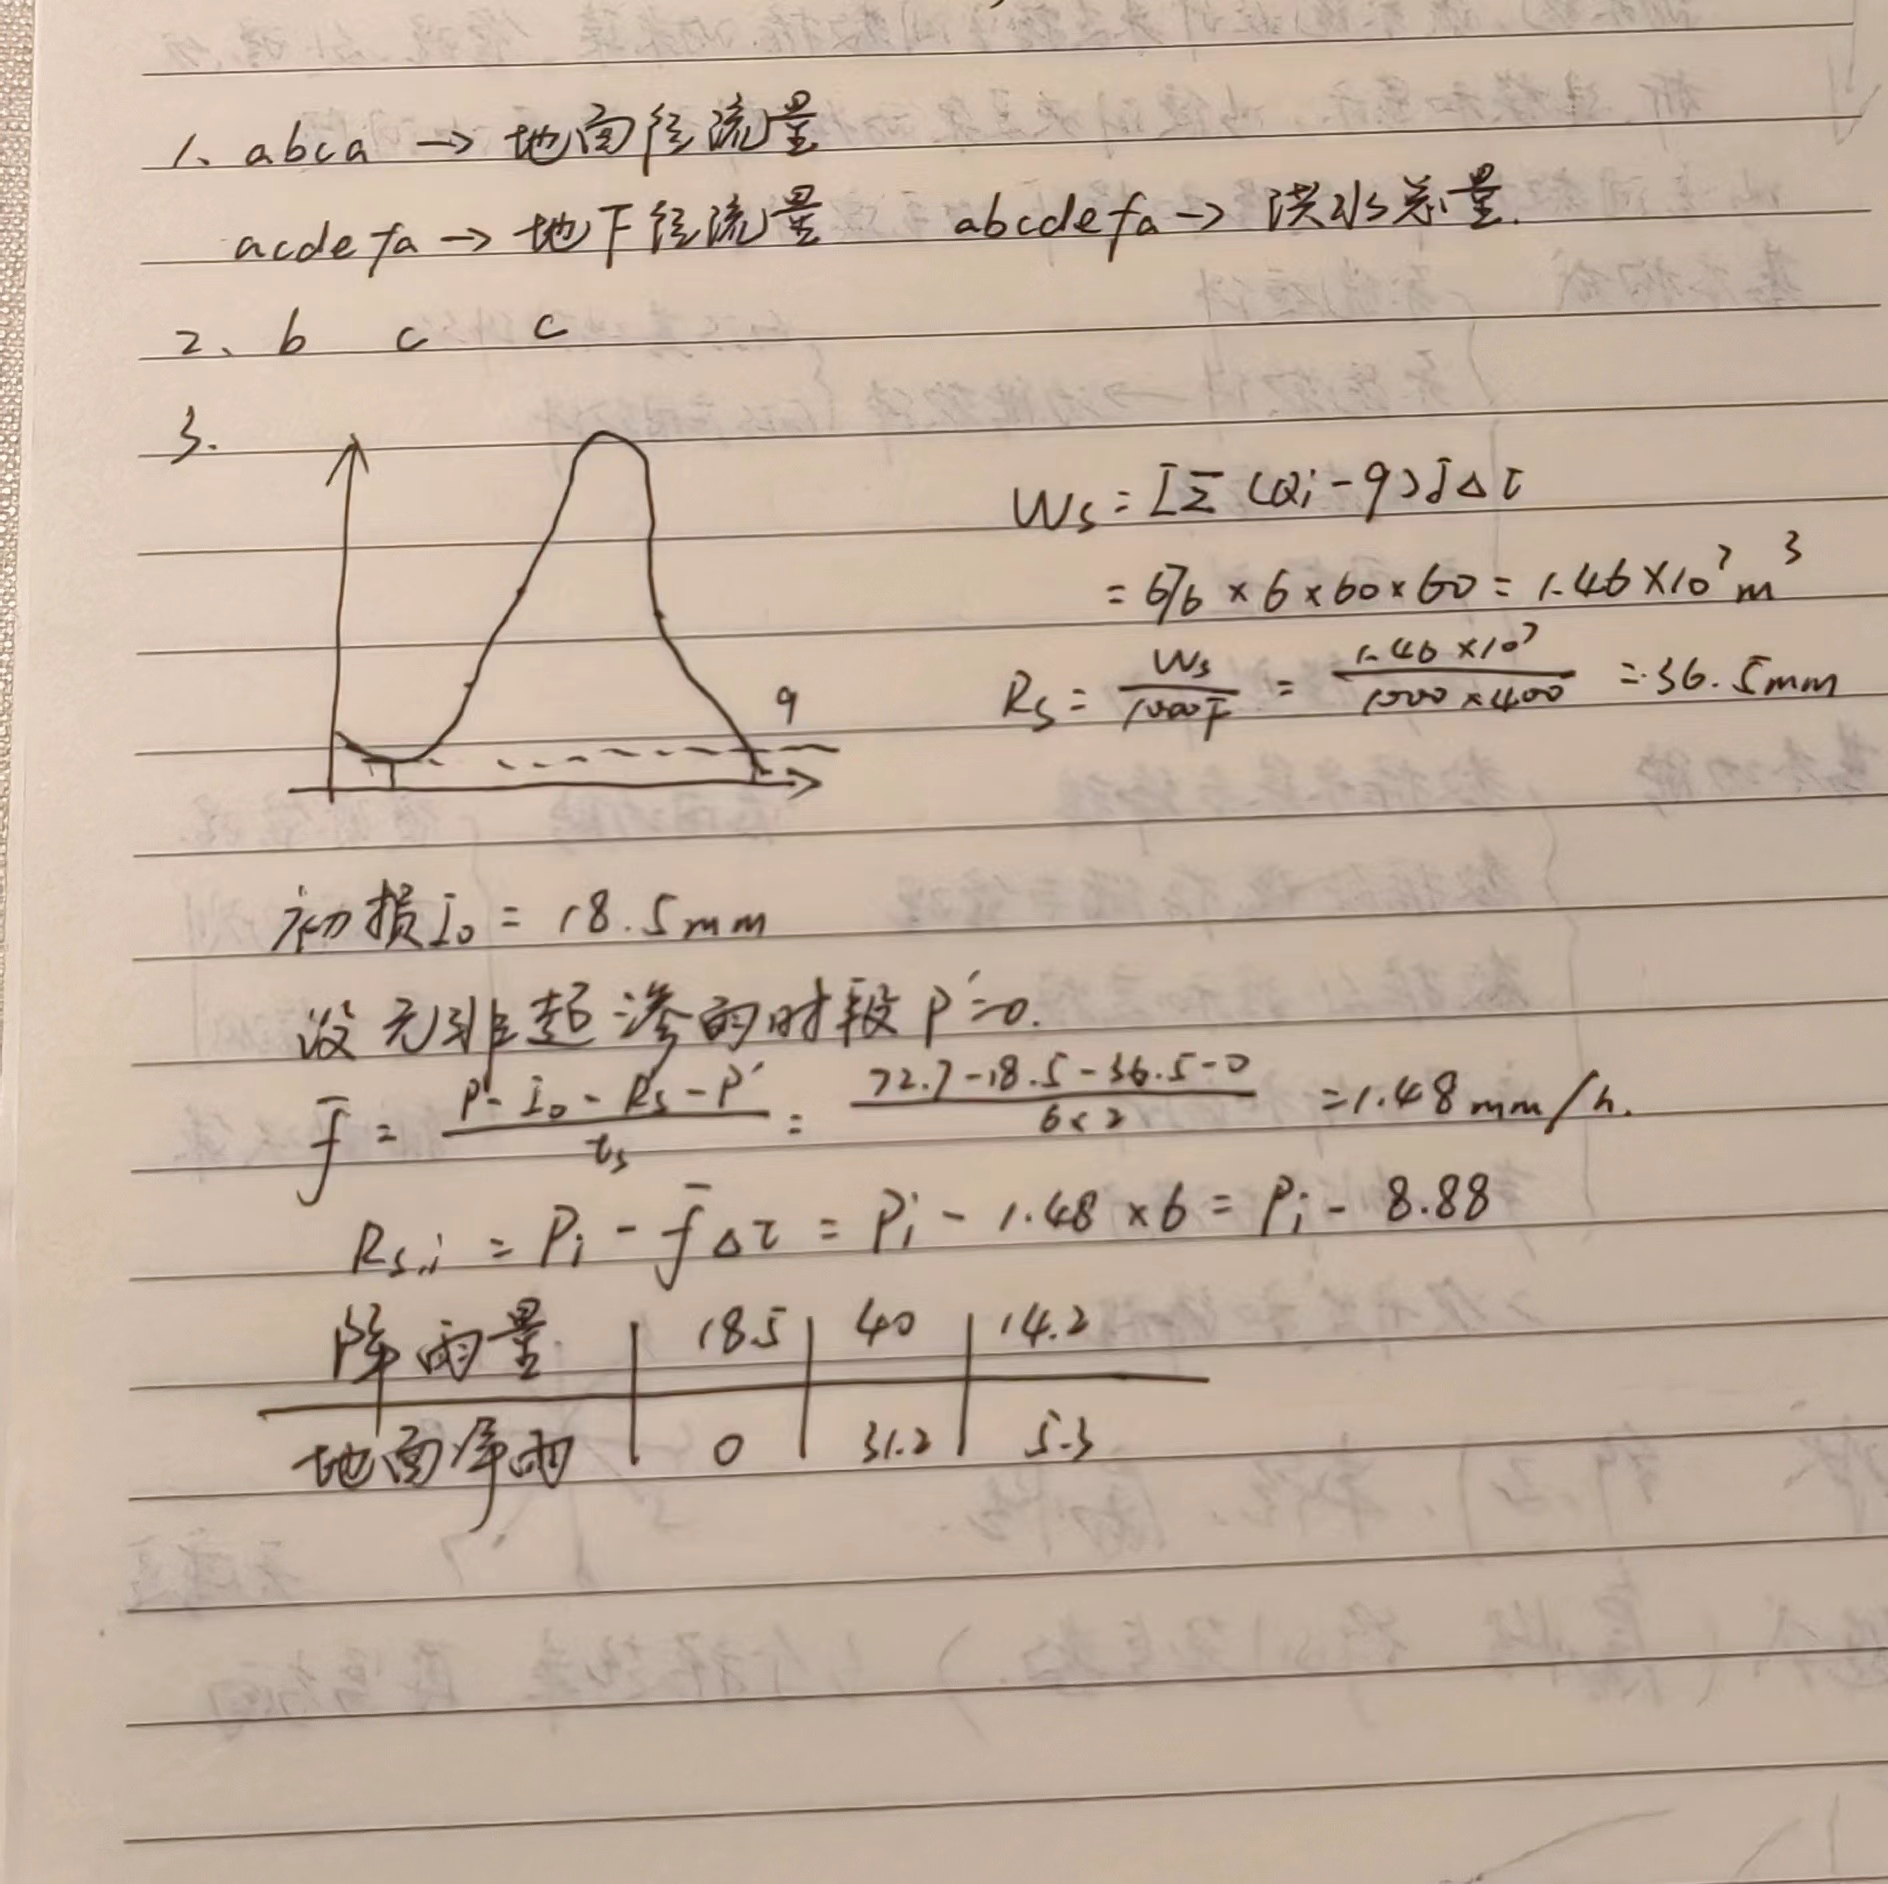 1、abca → 地面径流量
acdefa → 地下径流量 abcdefa → 洪水总量.
2、b c c
3.
Ws = [Σ(Qi-9)]Δt
= 676 × 6 × 60 × 60 = 1.46 × 10⁷ m³
Rs = Ws/1000F = 1.46×10⁷/1000×400 = 36.5mm
9
初损I₀ = 18.5mm
设无非超渗的时段P'=0.
f̄ = P-I₀-Rs-P'/ts = 72.7-18.5-36.5-0/6×2 = 1.48mm/h.
Rs,i = Pi - f̄Δt = Pi - 1.48×6 = Pi - 8.88
降雨量 18.5 40 14.2
地面净雨 0 31.2 5.3